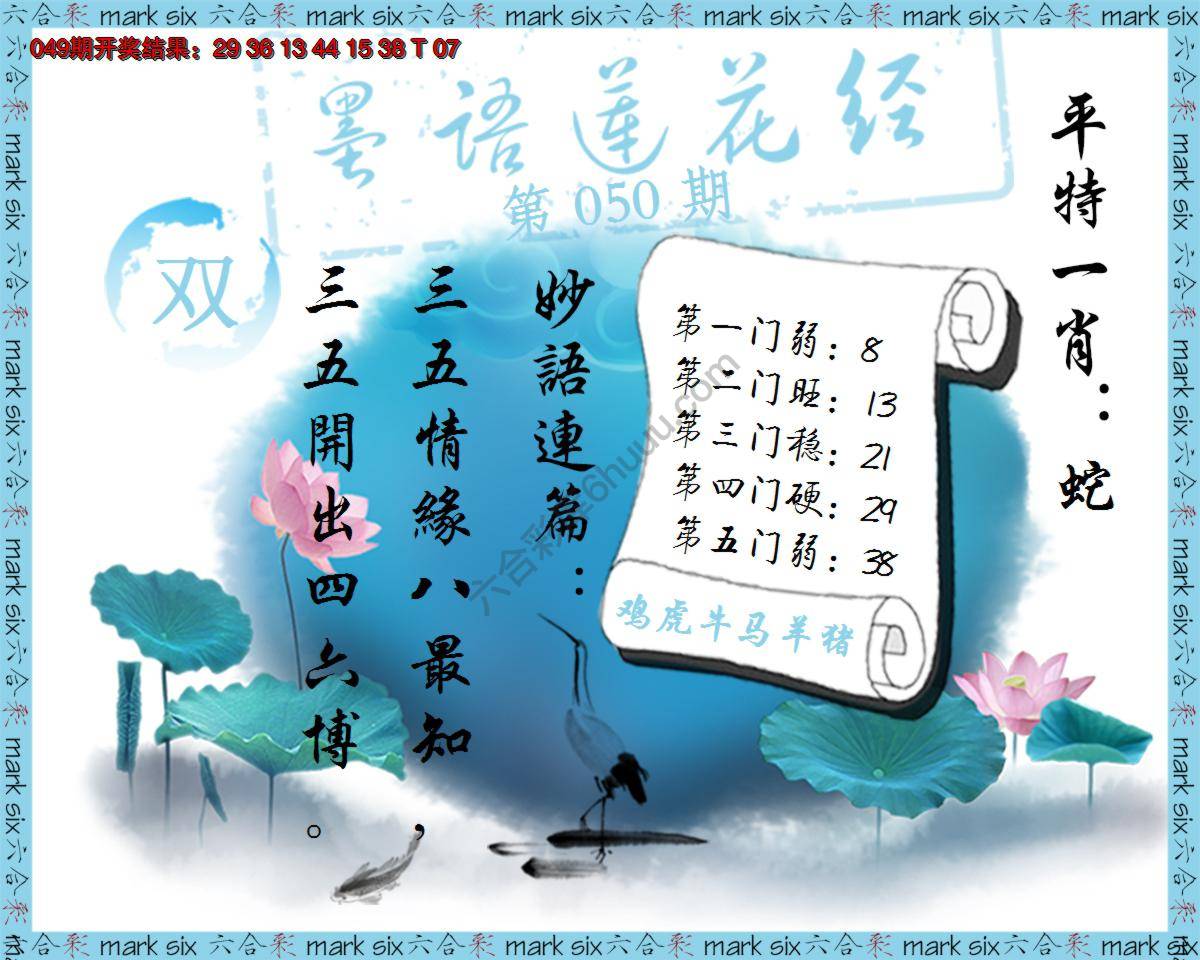 六合彩 mark six 六合彩 mark six 六合彩 mark six 六合彩 mark six 六合彩 mark six 六合彩 mark six
049期开奖结果：29 36 13 44 15 38 T 07
墨語莲花经
第 050 期
双
平特一肖：蛇
妙語連篇：
三五情緣八最知，
三五開出四六博。
第一门弱：8
第二门旺：13
第三门稳：21
第四门硬：29
第五门弱：38
鸡虎牛马羊猪
六合彩 mark six 六合彩 mark six 六合彩 mark six 六合彩 mark six 六合彩 mark six 六合彩 mark six